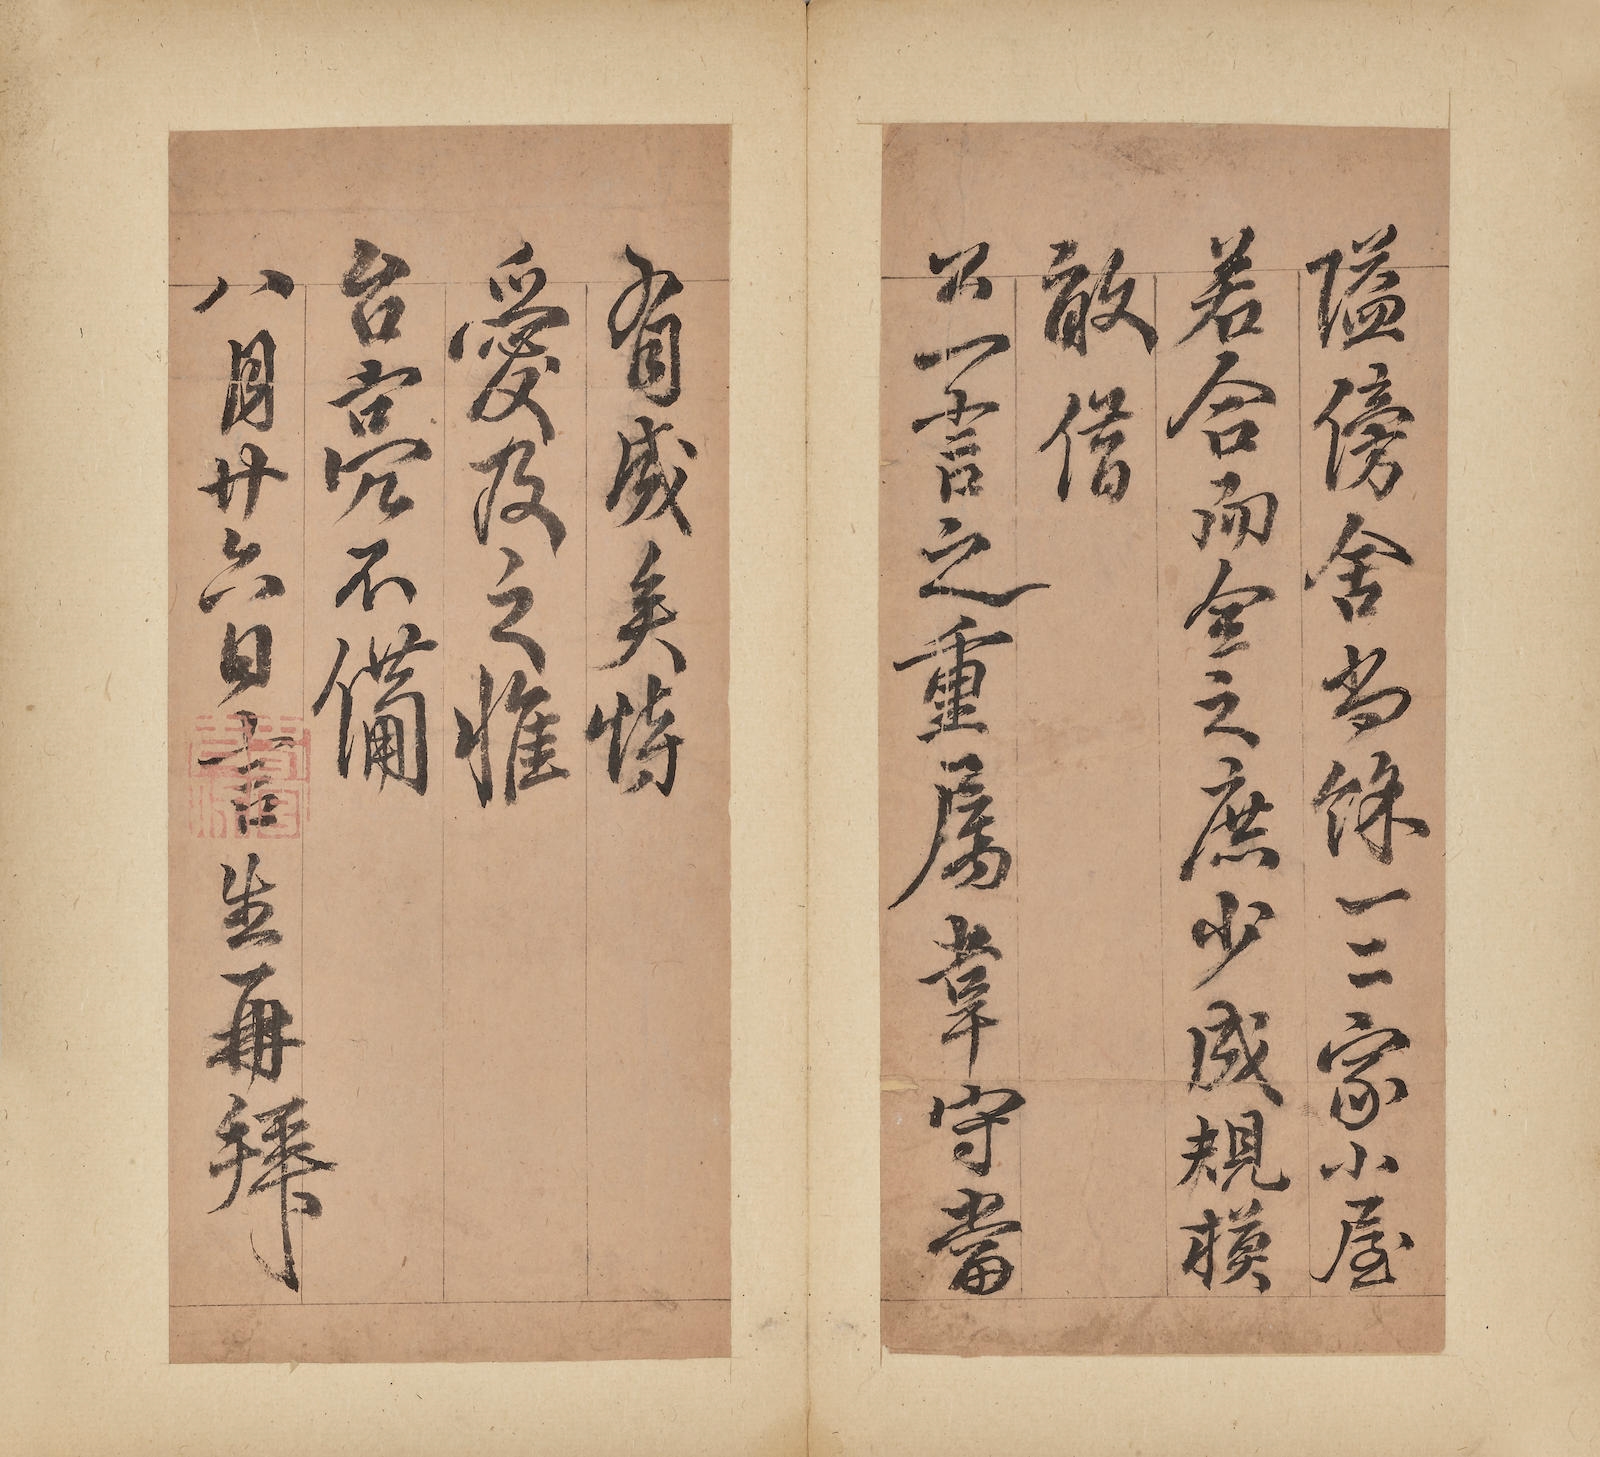 隘傍舍尚餘一二家小屋
若合而全之庶少成规模
敢借
公一言之重属韋守當
有成矣恃
愛及之惟
台亮不備
八月廿六日言生再拜